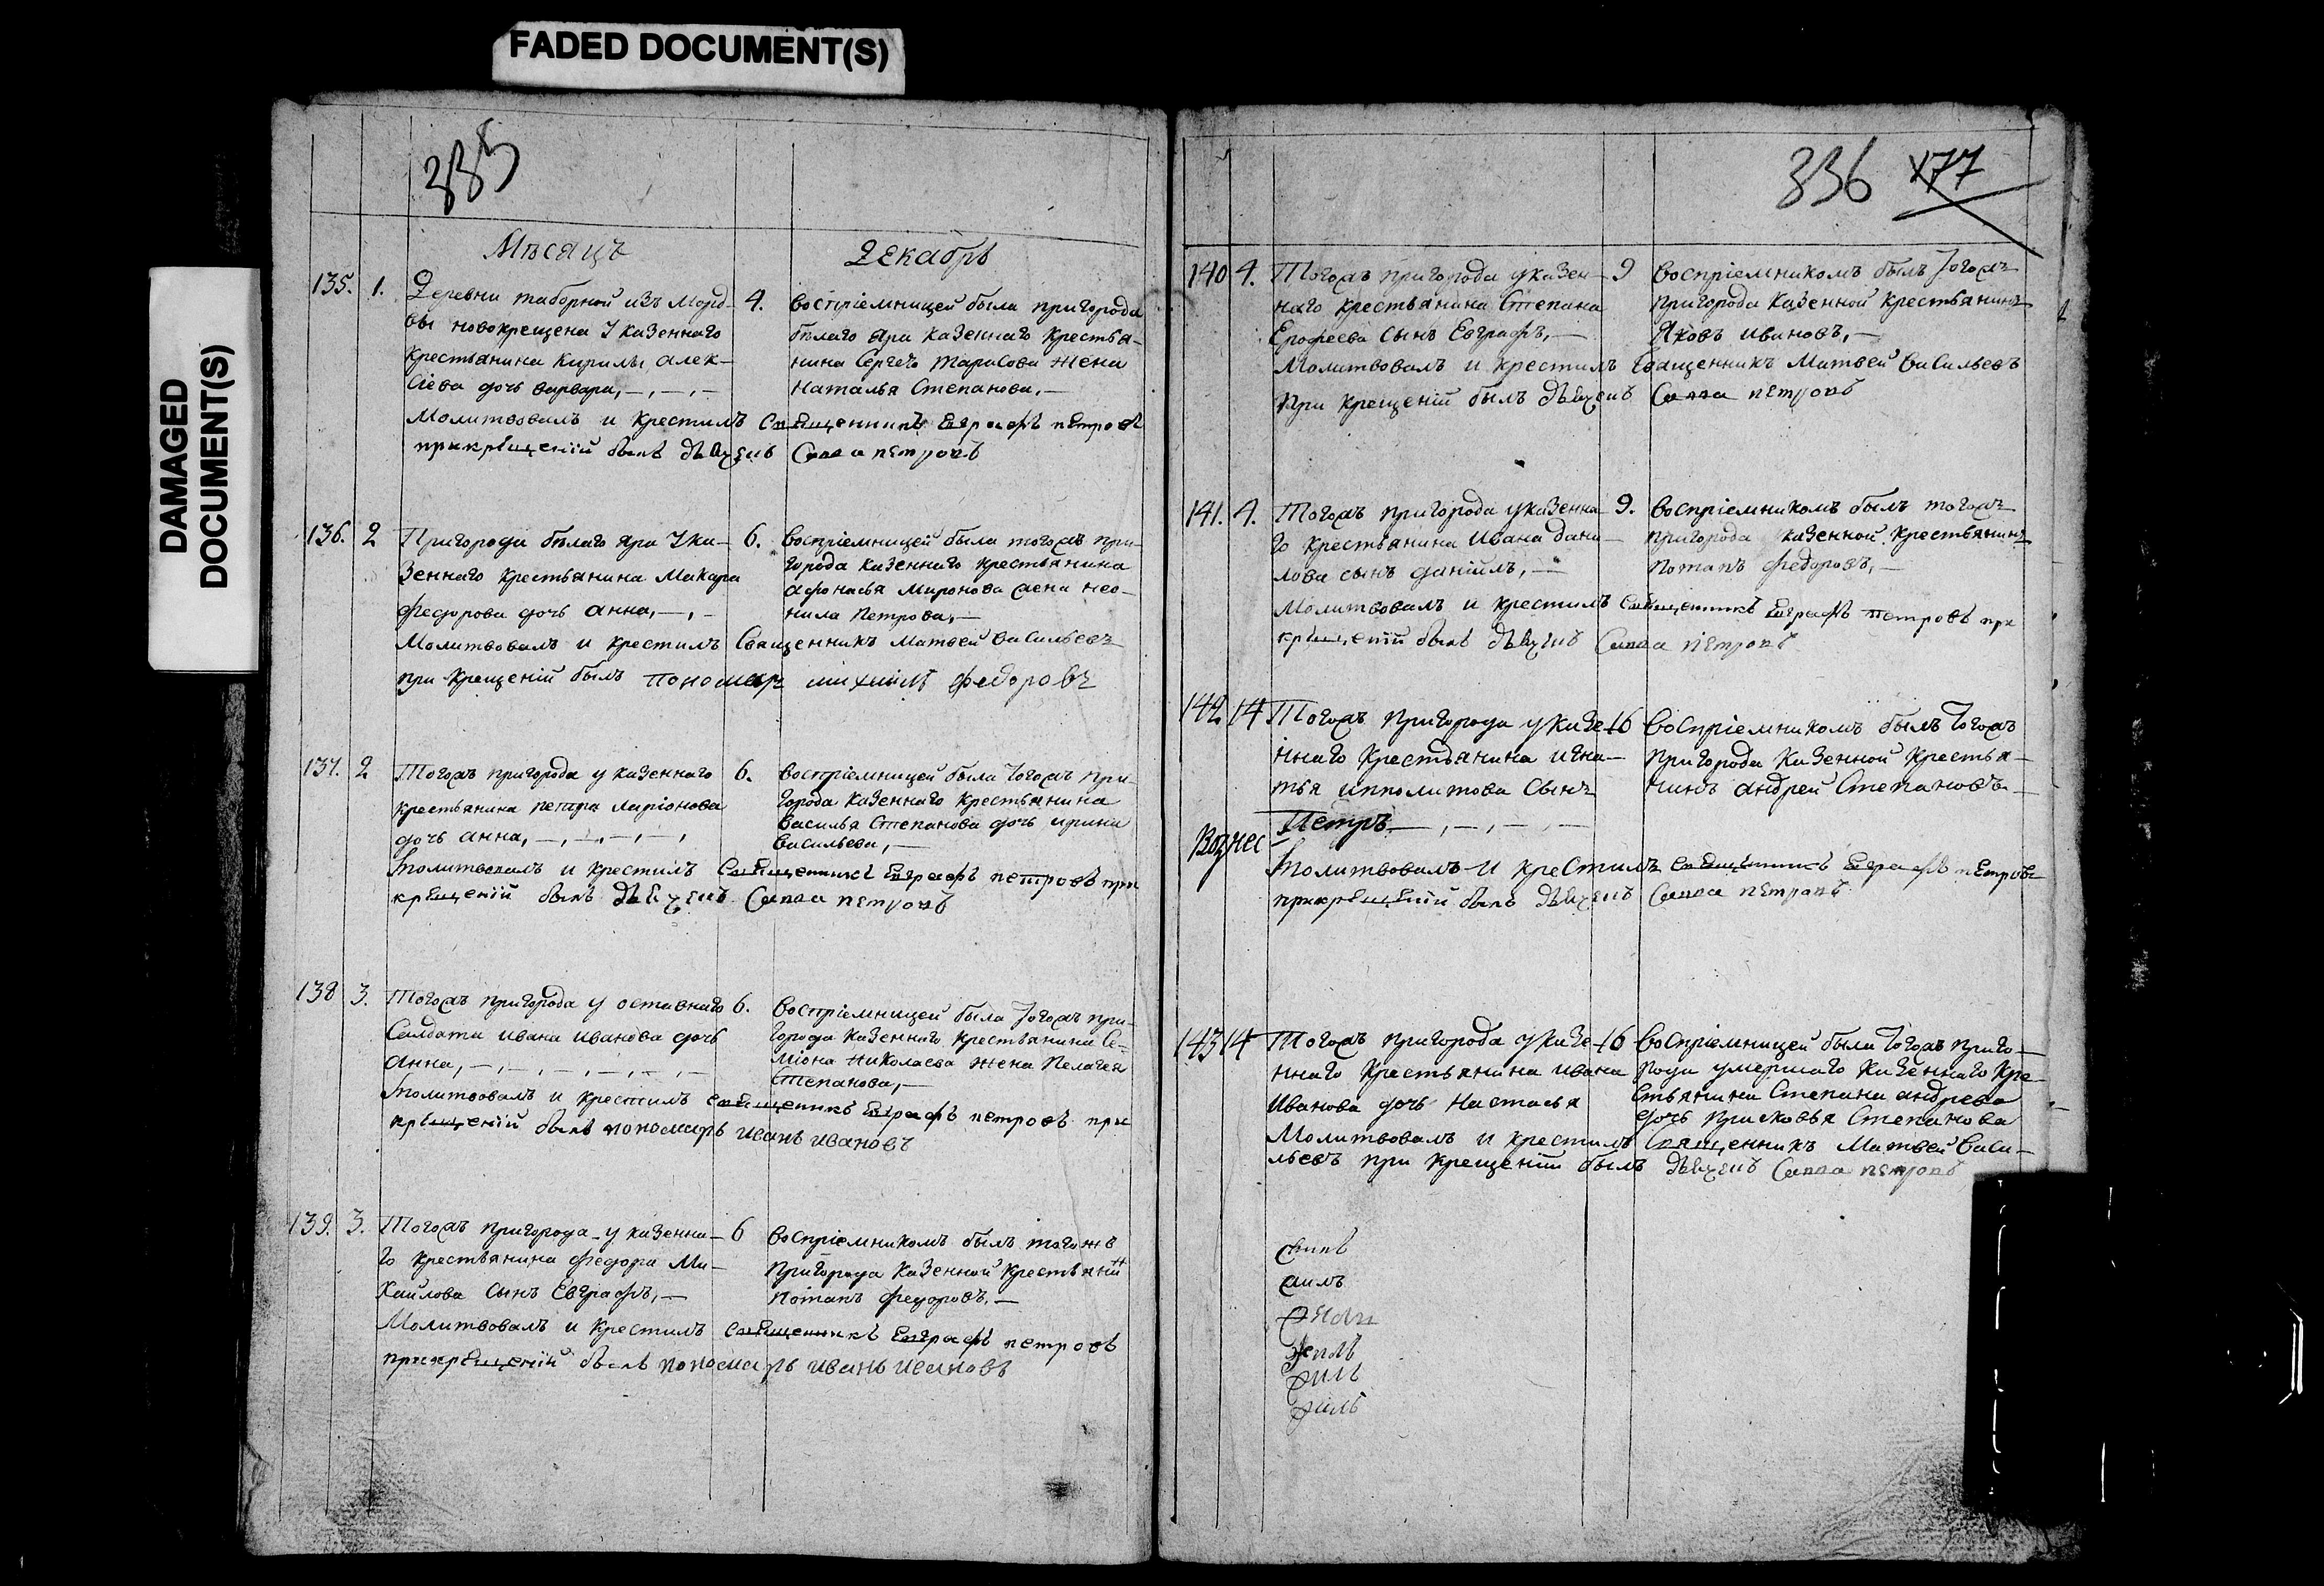 FADED DOCUMENT(S)
DAMAGED
DOCUMENT(S)
335
Мѣсяцъ Декабрь
135. 1. Деревни таборной изъ Морд-
вы новокрещена У казеннаго
крестьянина Кирилы алек-
сіева дочь варвара,
4. воспріемницей была пригорода
бѣлаго Яра казеннаго крестья-
нина Сергея Тарасова жена
Наталья Степанова,
Молитвовалъ и крестилъ Священникъ Евграфъ петровъ
прикрещеніи былъ дьячекъ Савва петровъ
136. 2 Пригорода бѣлаго яра У ка-
зеннаго крестьянина Макара
федорова дочь анна,
6. воспріемницей была тогожъ при-
города казеннаго крестьянина
афонасья Миронова жена нео-
нила Петрова,
Молитвовалъ и крестилъ Священникъ матвей васильевъ
при крещеніи былъ пономарь михаилъ федоровъ
137. 2 Тогожъ пригорода у казеннаго
крестьянина петра ларіонова
дочь анна,
6. воспріемницей была тогожъ при-
города казеннаго крестьянина
василья Степанова дочь ирина
васильева,
молитвовалъ и крестилъ Священникъ Евграфъ петровъ при
крещеніи былъ дьячекъ Савва петровъ
138 3. Тогожъ пригорода у отставнаго
Салдата ивана иванова дочь
анна,
6. воспріемницей была тогожъ при-
города казеннаго крестьянина Се-
міона николаева жена Пелагея
Степанова,
молитвовалъ и крестилъ священникъ Евграфъ петровъ при
крещеніи былъ пономарь иванъ ивановъ
139. 3. Тогожъ пригорода у казенна-
го крестьянина федора Ми-
хайлова сынъ Евграфъ,
6 воспріемникомъ былъ тогожъ
пригорода казенной крестьянинъ
потапъ федоровъ,
Молитвовалъ и крестилъ священникъ Евграфъ петровъ
прикрещеніи былъ пономарь иванъ ивановъ
336 177
140 4. Тогожъ пригорода у казен-
наго крестьянина Степана
Ерофеева сынъ Евграфъ,
9 воспріемникомъ былъ тогожъ
пригорода казенной крестьянинъ
Яковъ ивановъ,
Молитвовалъ и крестилъ Священникъ Матвей васильевъ
при крещеніи былъ дьячекъ Савва петровъ
141. 4. Тогожъ пригорода у казенна-
го крестьянина ивана дани-
лова сынъ даніилъ,
9. воспріемникомъ былъ тогожъ
пригорода казенной крестьянинъ
потапъ федоровъ,
Молитвовалъ и крестилъ священникъ Евграфъ петровъ при
крещеніи былъ дьячекъ Савва петровъ
142 14 Тогожъ пригорода у казе-
ннаго крестьянина игна-
тья ипполитова Сынъ
Петръ
16 воспріемникомъ былъ тогожъ
пригорода казенной крестья-
нинъ андрей Степановъ
Вознес
молитвовалъ и крестилъ священникъ Евграфъ петровъ
прикрещеніи былъ дьячекъ Савва петровъ
143 14 Тогожъ пригорода у казе-
ннаго крестьянина ивана
иванова дочь настасья
16 воспріемницей была тогожъ приго-
рода умершаго казеннаго кре-
стьянина Степана андреева
дочь прасковья Степанова
Молитвовалъ и крестилъ Священникъ Матвей васи-
льевъ при крещеніи былъ дьячекъ Савва петровъ